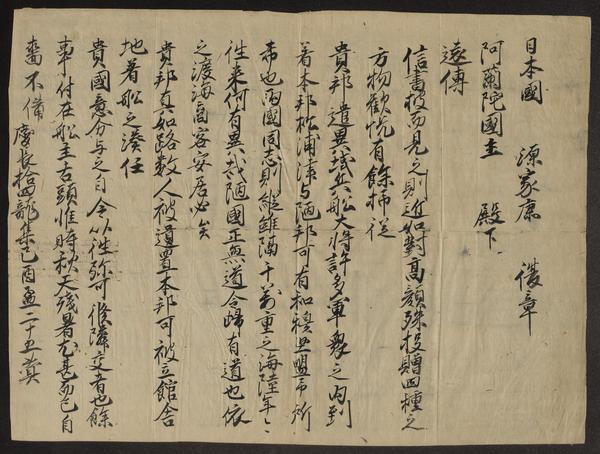 日本國 源家康 復章
阿蘭陀國主 殿下
遠傳
信書披而見之則近如對高顔殊投贈四種之
方物歡悦有餘抑從
貴邦遣異域兵船大將許多軍衆之内到
着本邦松浦津与陋邦可有和親之盟予所
希也両國同志則縱雖隔千萬重之海陸年々
往来何有異哉陋國正無道令歸有道也依
之渡海商客安居必矣
貴邦真如路数人被遣置本邦可被立館舎
地着船之湊任
貴國意分与之自今以往弥可修隣交者也餘
事付在船主舌頭惟時秋天殘暑尤甚而已自
嗇不備 慶長拾四龍集己酉孟二十五蓂